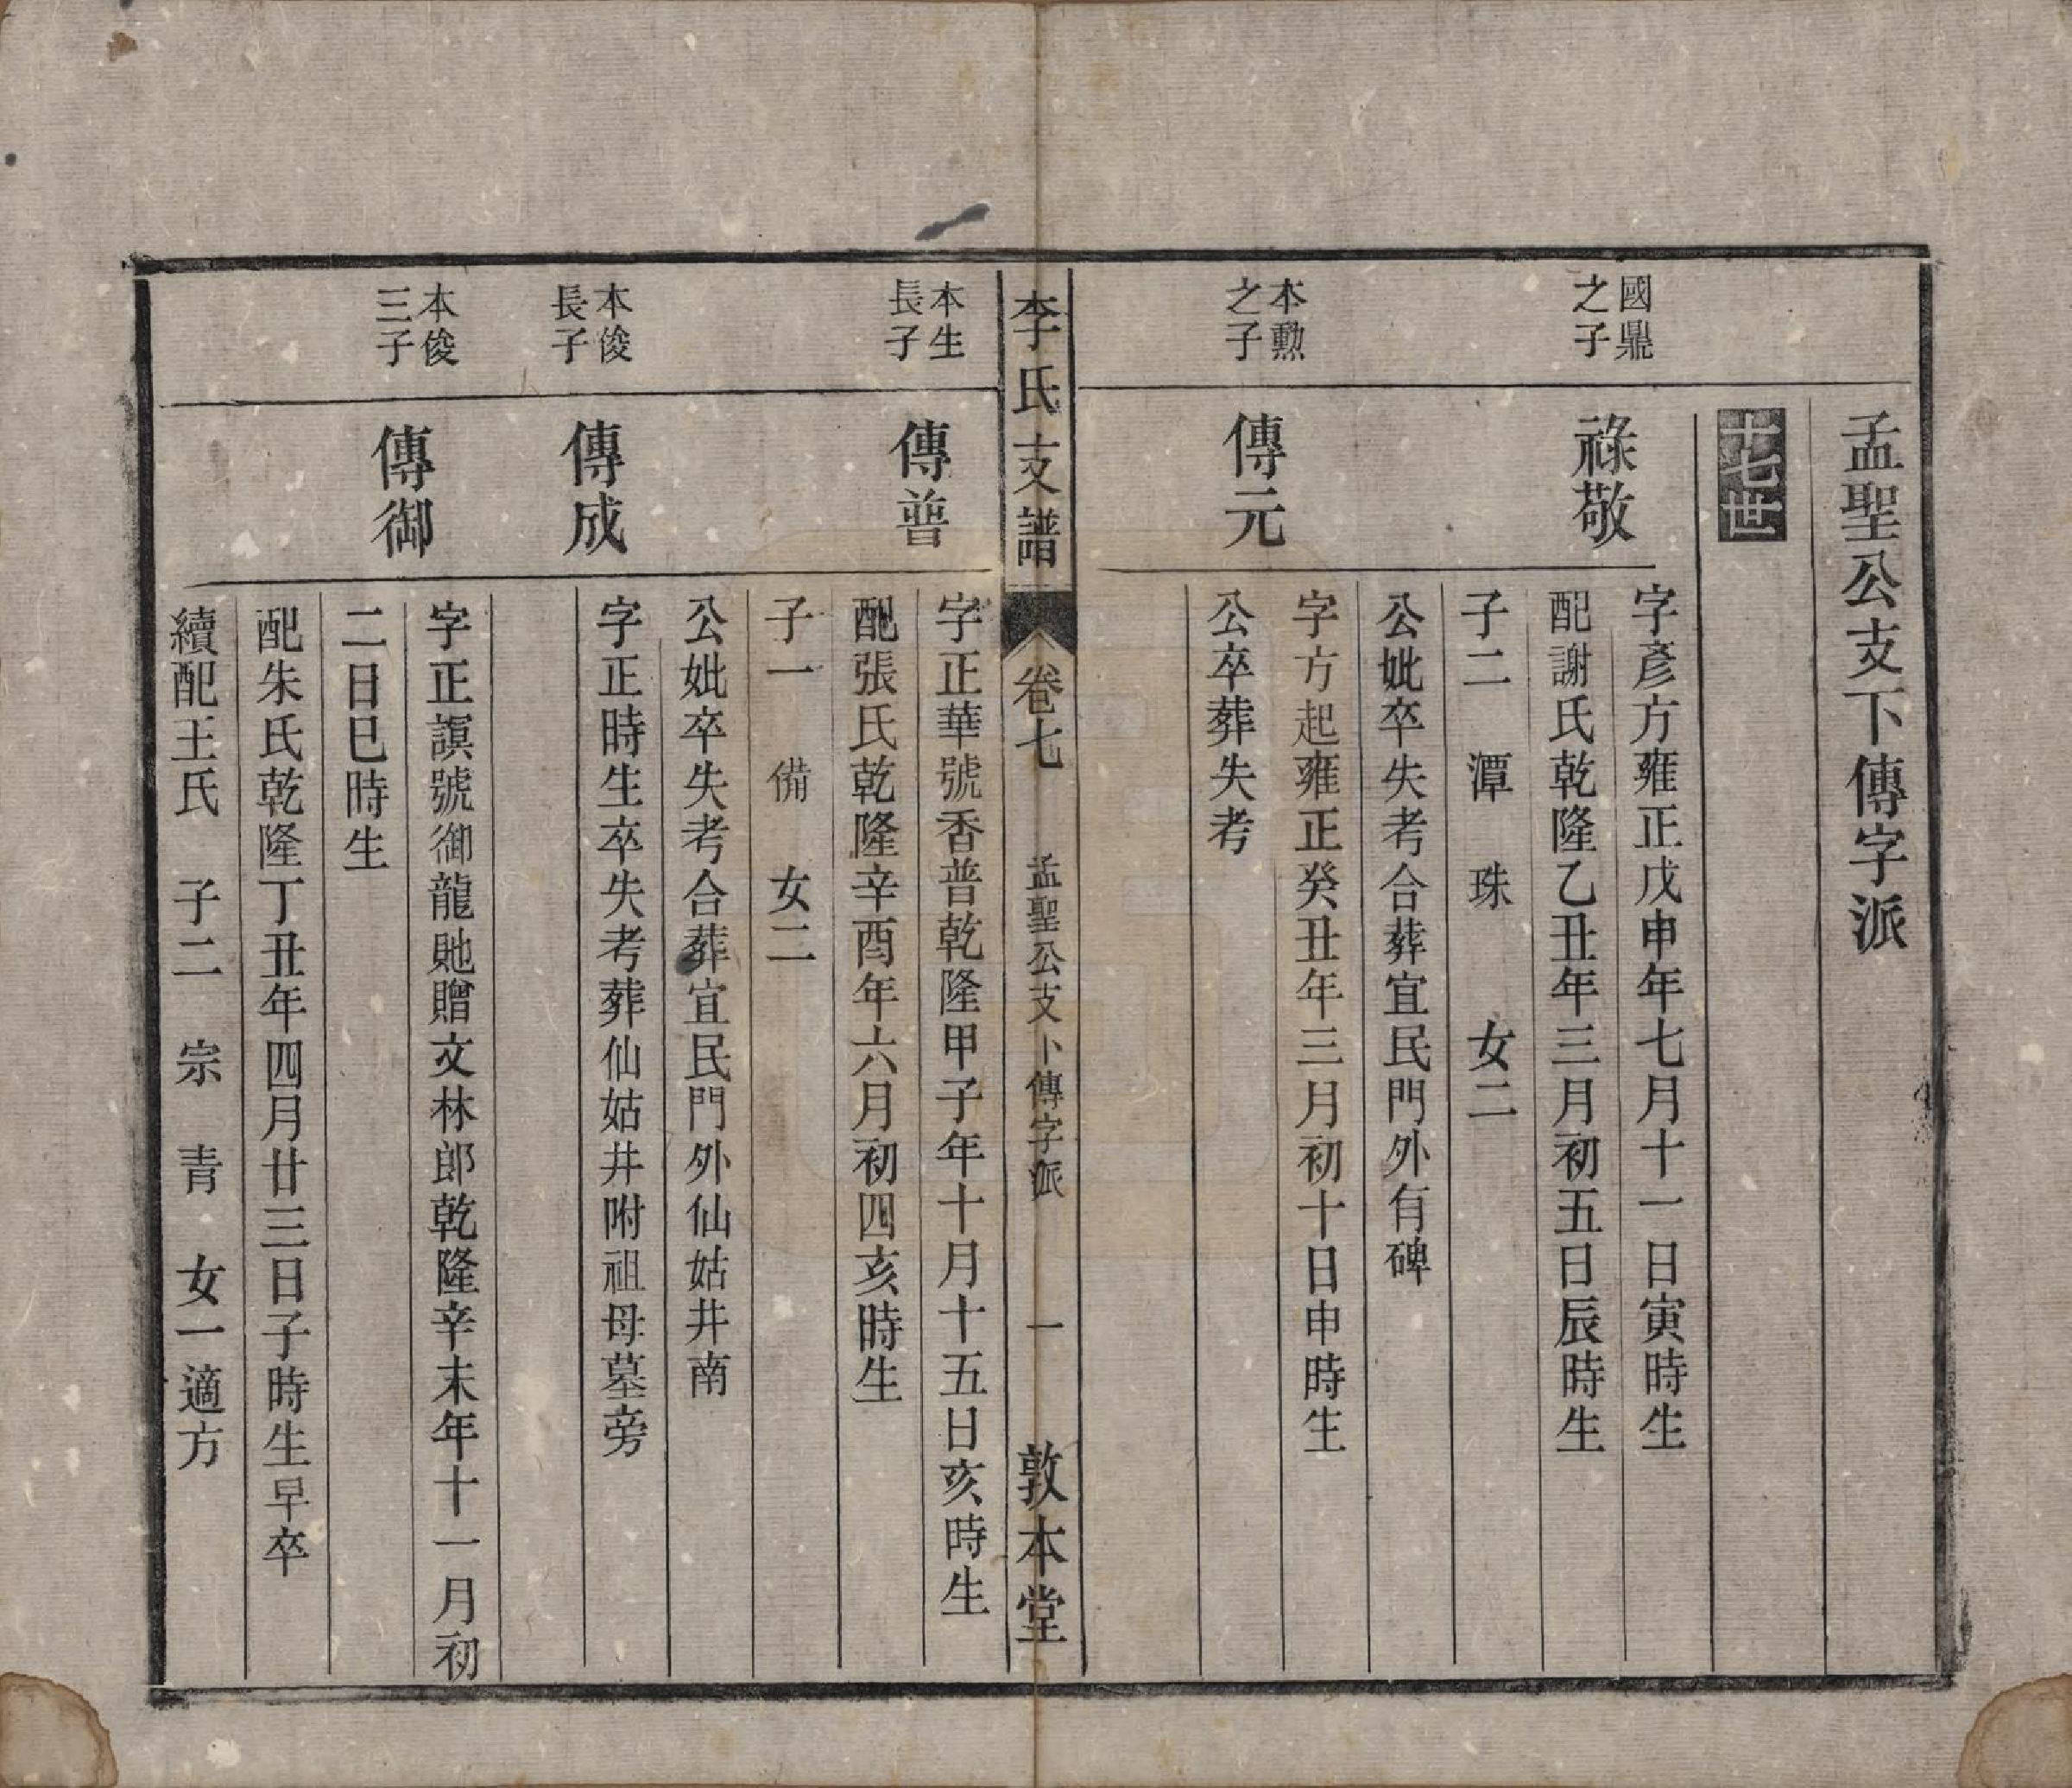 孟聖公支下傳字派
十七世
國鼎
之子
祿敬
字彥方雍正戊申年七月十一日寅時生
配謝氏乾隆乙丑年三月初五日辰時生
子二 潭 珠 女二
公妣卒失考合葬宜民門外有碑
本勲
之子
傳元
字方起雍正癸丑年三月初十日申時生
公卒葬失考
李氏支譜 卷七 孟聖公支下傳字派 一 敦本堂
本生
長子
傳普
字正華號香普乾隆甲子年十月十五日亥時生
配張氏乾隆辛酉年六月初四亥時生
子一 備 女二
公妣卒失考合葬宜民門外仙姑井南
本俊
長子
傳成
字正時生卒失考葬仙姑井附祖母墓旁
本俊
三子
傳御
字正謨號御龍貤贈文林郎乾隆辛未年十一月初
二日巳時生
配朱氏乾隆丁丑年四月廿三日子時生早卒
續配王氏 子二 宗 青 女一適方